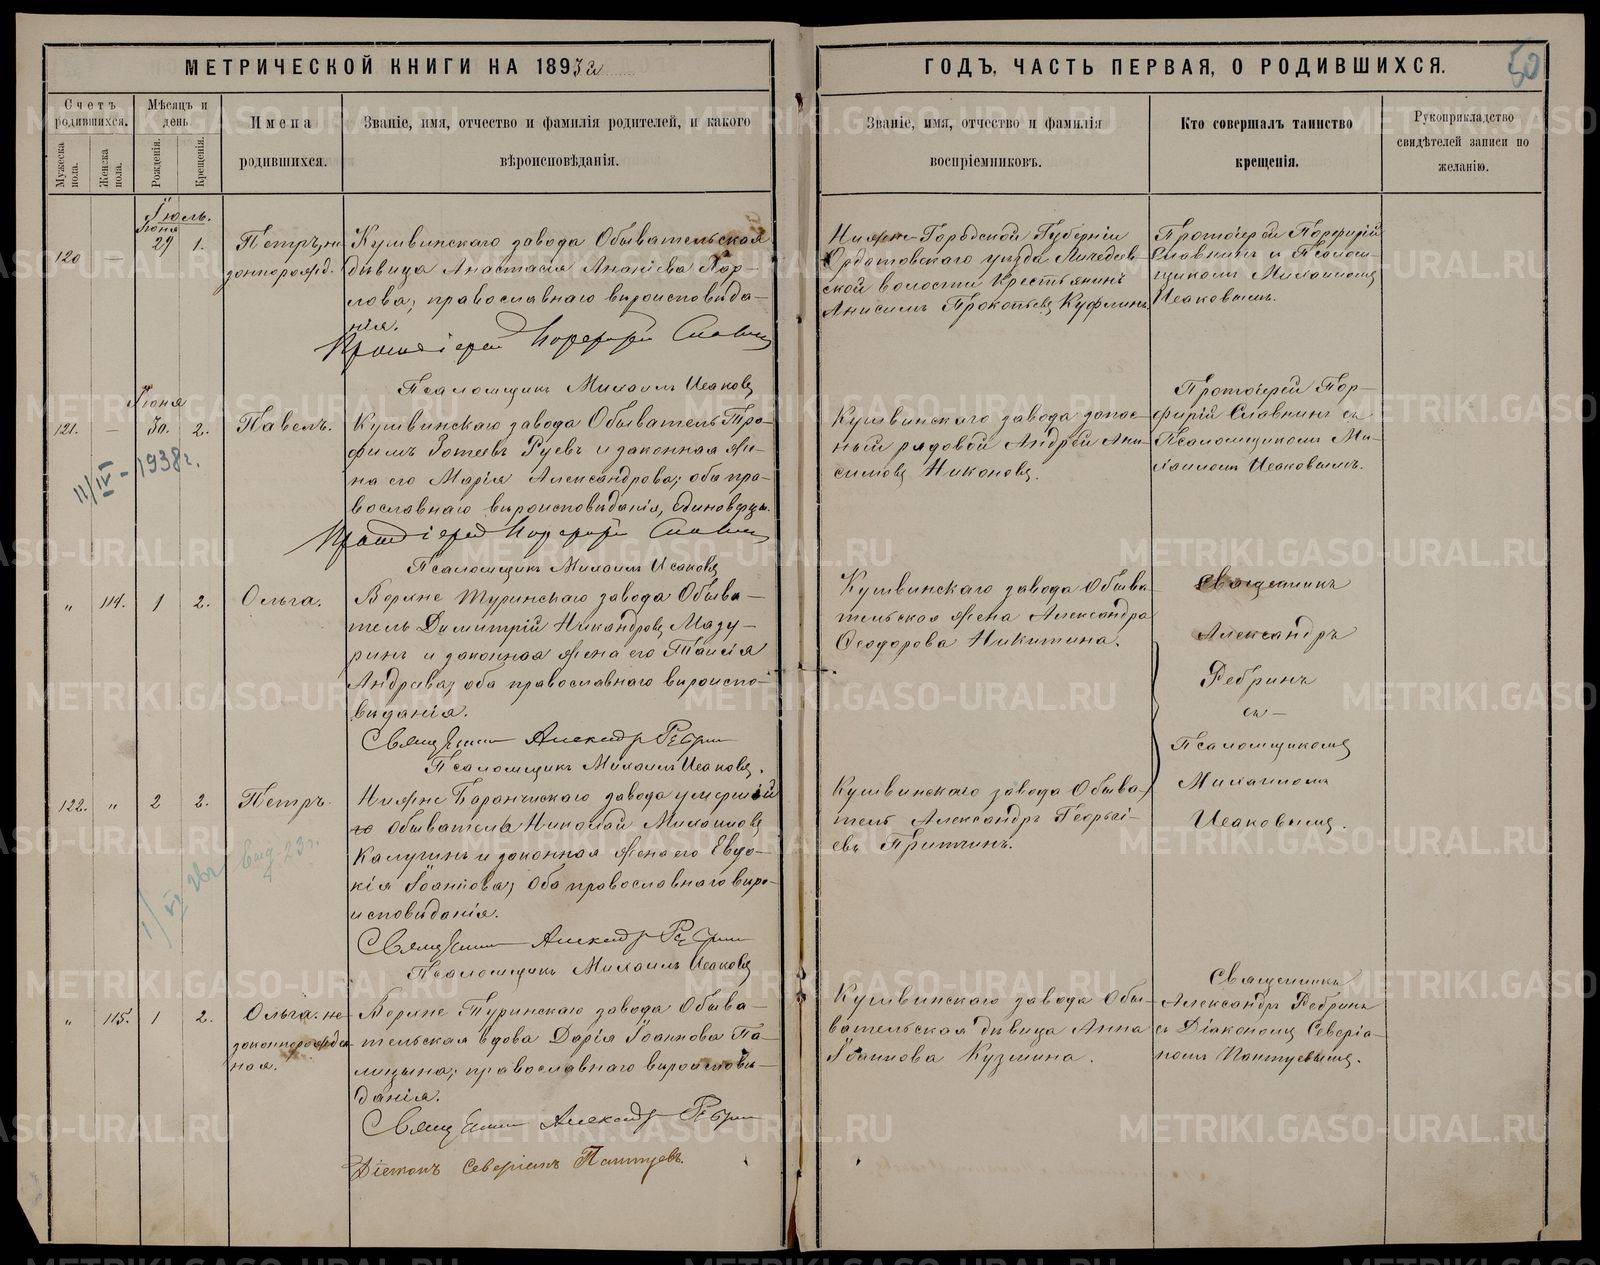 МЕТРИЧЕСКОЙ КНИГИ НА 1893й
ГОДЪ, ЧАСТЬ ПЕРВАЯ, О РОДИВШИХСЯ.
50
Счетъ родившихся.
Мужеска пола.
Женска пола.
Мѣсяцъ и день
Рожденія.
Крещенія.
Имена
родившихся.
Званіе, имя, отчество и фамилія родителей, и какого
вѣроисповѣданія.
Званіе, имя, отчество и фамилія
воспріемниковъ.
Кто совершалъ таинство
крещенія.
Рукоприкладство
свидѣтелей записи по
желанію.
Іюль.
Іюня
120 — 29 1.
Петръ, не
законнорожд.
Кушвинскаго завода Обывательская
дѣвица Анастасія Ананіева
православнаго вѣроисповѣда-
нія.
Протоіерей Порфирій Славнинъ
Псаломщикъ Михаилъ Исаковъ
Ниже-Городской Губерніи
Ардатовскаго уѣзда
ской волости Крестьянинъ
Анисимъ Прокопьевъ
Протоіерей Порфирій
Славнинъ и Псалом-
щикомъ Михаиломъ
Исаковымъ.
Іюня
121. — 30. 2.
Павелъ.
11/IV-1938г.
Кушвинскаго завода Обыватель Тро-
фимъ Зотеевъ Руевъ и законная же-
на его Марія Александрова; оба пра-
вославнаго вѣроисповѣданія, Единовѣрцы.
Протоіерей Порфирій Славнинъ
Псаломщикъ Михаилъ Исаковъ
Кушвинскаго завода запас-
ный рядовой Андрей Ани-
симовъ Никоновъ.
Протоіерей Пор-
фирій Славнинъ съ
Псаломщикомъ Ми-
хаиломъ Исаковымъ.
„ 114. 1 2.
Ольга.
Верхне Туринскаго завода Обыва-
тель Димитрій Никандровъ Мазу-
ринъ и законная жена его Таисія
Андреева; оба православнаго вѣроиспо-
вѣданія.
Священникъ Александръ Ребринъ
Псаломщикъ Михаилъ Исаковъ.
Кушвинскаго завода Обыва-
тельская жена Александра
Ѳеодорова Никитина.
Священникъ
Александръ
Ребринъ
съ —
Псаломщикомъ
Михаиломъ
Исаковымъ.
122. „ 2 2.
Петръ.
Нижне Баранчинскаго завода умершій
го обывателя Николай Михаиловъ
Калугинъ и законная жена его Евдо-
кія Іоаннова; Оба православнаго вѣро-
исповѣданія.
Священникъ Александръ Ребринъ
Псаломщикъ Михаилъ Исаковъ
Кушвинскаго завода Обыва-
тель Александръ Георгі-
евъ
„ 115. 1 2.
Ольга. не
законнорожден
ная.
Верхне Туринскаго завода Обыва-
тельская вдова Дарія Іоаннова Па-
лицына; православнаго вѣроисповѣ-
данія.
Священникъ Александръ Ребринъ
Діаконъ Северіанъ Пантуевъ.
Кушвинскаго завода Обы-
вательская дѣвица Анна
Іоаннова Кузмина.
Священникъ
Александръ Ребринъ
съ Діакономъ Северіа-
номъ Пантуевымъ.
METRIKI.GASO-URAL.RU